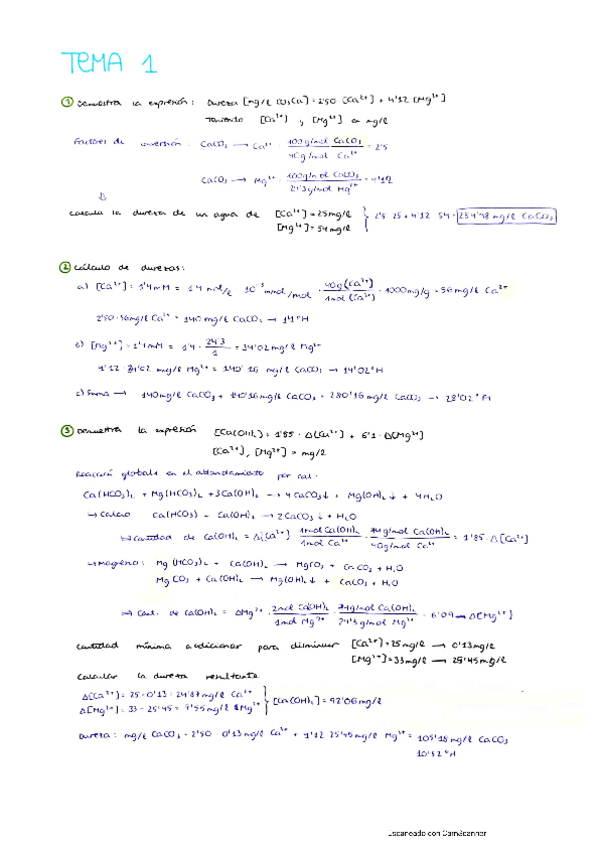 TEMA 1
① Demuestra la expresión: Dureza [mg/l CO3Ca] = 2'50 [Ca²⁺] + 4'12 [Mg²⁺]
Tomando [Ca²⁺] y [Mg²⁺] en mg/l
Factores de conversión: CaCO3 → Ca²⁺ · 100g/mol CaCO3 / 40g/mol Ca²⁺ = 2'5
CaCO3 → Mg²⁺ · 100g/mol CaCO3 / 24'3g/mol Mg²⁺ = 4'12
⇓
calcula la dureza de un agua de [Ca²⁺] = 25mg/l } 2'5 · 25 + 4'12 · 54 = 284'98 mg/l CaCO3
[Mg²⁺] = 54mg/l
② Cálculo de durezas:
a) [Ca²⁺] = 1'4mM = 1'4 mol/l · 10⁻³ mmol/mol · 40g (Ca²⁺) / 1mol (Ca²⁺) · 1000mg/g = 56mg/l Ca²⁺
2'50 · 56mg/l Ca²⁺ = 140mg/l CaCO3 → 14°H
b) [Mg²⁺] = 1'4mM = 1'4 · 24'3 / 1 = 34'02mg/l Mg²⁺
4'12 · 34'02 mg/l Mg²⁺ = 140'16 mg/l CaCO3 → 14'02°H
c) Suma → 140mg/l CaCO3 + 140'16mg/l CaCO3 = 280'16mg/l CaCO3 → 28'02°H
③ Demuestra la expresión [Ca(OH)2] = 1'85 · Δ[Ca²⁺] + 6'1 · Δ[Mg²⁺]
[Ca²⁺], [Mg²⁺] = mg/l
Reacción global en el ablandamiento por cal.
Ca(HCO3)2 + Mg(HCO3)2 + 3Ca(OH)2 → 4CaCO3↓ + Mg(OH)2↓ + 4H2O
↳ Calcio Ca(HCO3) - Ca(OH)2 → 2CaCO3↓ + H2O
↳ Cantidad de Ca(OH)2 = Δ[Ca²⁺] · 1mol Ca(OH)2 / 1mol Ca²⁺ · 74g/mol Ca(OH)2 / 40g/mol Ca²⁺ = 1'85 · Δ[Ca²⁺]
↳ Magnesio: Mg(HCO3)2 + Ca(OH)2 → MgCO3 + CaCO3 + H2O
MgCO3 + Ca(OH)2 → Mg(OH)2↓ + CaCO3 + H2O
⇒ Cant. de Ca(OH)2 = ΔMg²⁺ · 2mol Ca(OH)2 / 1mol Mg²⁺ · 74g/mol Ca(OH)2 / 24'3g/mol Mg²⁺ · 6'09 → Δ[Mg²⁺]
cantidad mínima a adicionar para disminuir [Ca²⁺] = 25mg/l → 0'13mg/l
[Mg²⁺] = 33mg/l → 25'45mg/l
Calcular la dureza resultante
Δ[Ca²⁺] = 25 - 0'13 = 24'87mg/l Ca²⁺ } [Ca(OH)2] = 92'06mg/l
Δ[Mg²⁺] = 33 - 25'45 = 7'55mg/l Mg²⁺
Dureza: mg/l CaCO3 = 2'50 · 0'13mg/l Ca²⁺ + 4'12 · 25'45mg/l Mg²⁺ = 105'18mg/l CaCO3
10'52°H
Escaneado con CamScanner